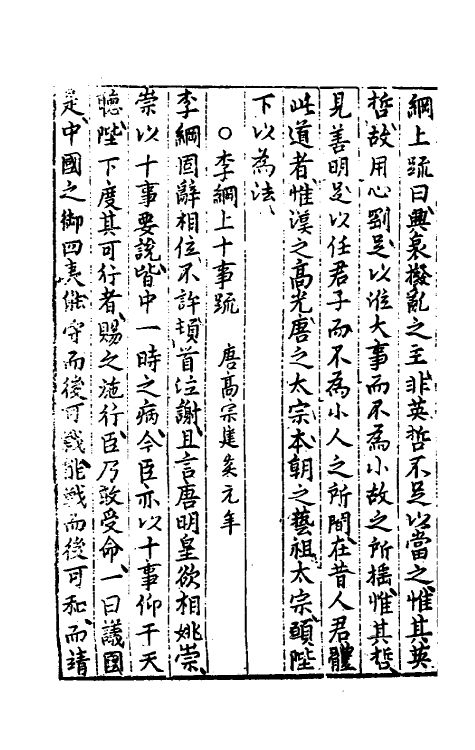 綱上疏曰興衰撥亂之主非英哲不足以當之惟其英
哲故用心剛足以涖大事而不為小故之所搖惟其哲
見善明足以任君子而不為小人之所間在昔人君體
此道者惟漢之高光唐之太宗本朝之藝祖太宗願陛
下以為法
○李綱上十事疏 唐高宗建炎元年
李綱固辭相位不許頓首泣謝且言唐明皇欲相姚崇
崇以十事要說皆中一時之病今臣亦以十事仰干天
聽陛下度其可行者賜之施行臣乃敢受命一曰議國
是中國之御四夷能守而後可戰能戰而後可和而靖